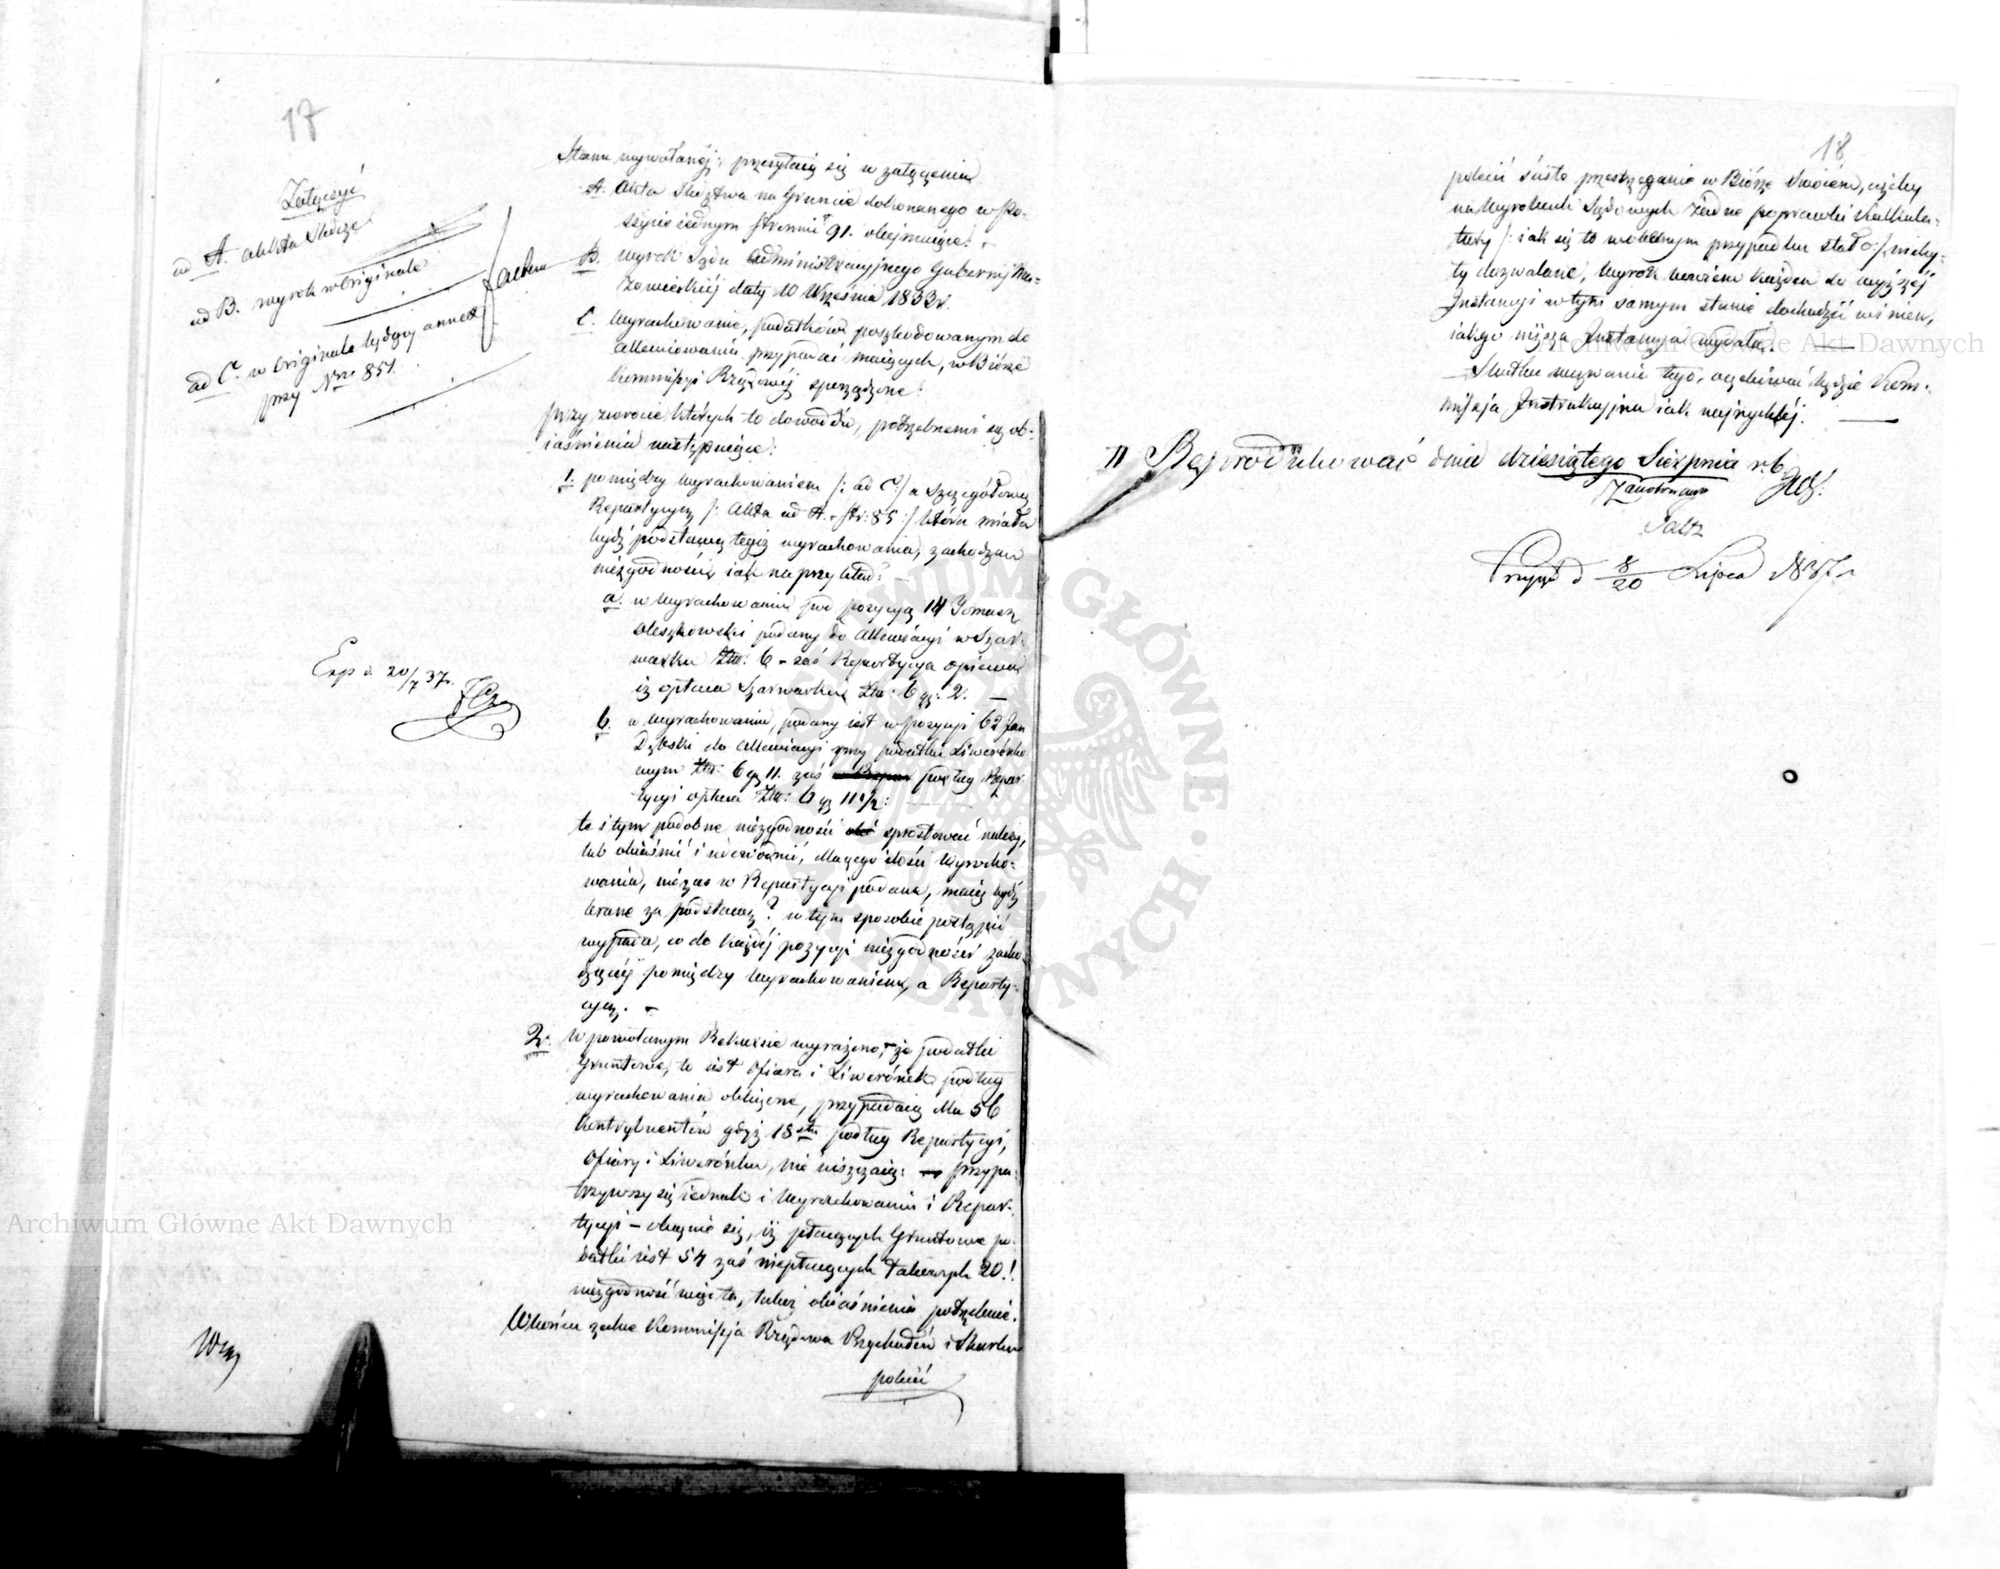 17
Załączyć
ad A. akta śledcze
ad B. wyrok w Originale
ad C. w Originale będącej annex
przy Nrze 851.
Exp d. 20/7 37r.
Stanu wywołanej; przesyłają się w załączeniu
A. Akta Śledztwa na Gruncie dokonanego w Po-
szycie jednym stronnic 91. obejmujące!
B. wyrok Sądu Administracyjnego Gubernij Ma-
zowieckiej daty 10 Września 1833r.
C. Wyrachowanie, podatków poszkodowanym do
allewiowania przypadać mających, w Biórze
Kommissyi Rządowej sporządzone!
przy zwrocie których-to dowodów, potrzebnemi są ob-
jaśnienia następujące:
1. pomiędzy wyrachowaniem /: ad C :/ a Szczegółową
Repartycyą /: Akta ad A. str: 85 :/ która miała
bydź podstawą tegoż wyrachowania, zachodzą
niezgodności, jak na przykład:
a. w wyrachowaniu pod pozycyą 14 Tomasz
Oleszkowski podany do Allewiacyi w Szar-
warku Złp: 6 – zaś Repartycya opiewa
iż opłaca Szarwarku Złp: 6 gr: 2. —
b. w wyrachowaniu, podany jest w pozycyi 62 Jan
Dębski do allewiacyi przy podatku Liwerunko-
wym Złp: 6 gr 11. zaś podług Repar-
tycyi opłaca Złp: 6 gr 11 1/2:
te i tym podobne niezgodności sprostować należy,
lub objaśnić i udowodnić, dlaczego ilości Wyracho-
wania, nie zaś w Repartycyi podane, mają bydź
brane za podstawę? w tym sposobie postąpić
wypada, co do każdej pozycyi niezgodności zacho-
dzącej pomiędzy Wyrachowaniem, a Reparty-
cyą. –
2. W powołanym Rekursie wyrażono, że podatki
Gruntowe, to jest Ofiara i Liwerunek podług
wyrachowania obliczone, przypadają dla 56
Kontrybuentów gdyż 18stu podług Repartycyi,
Ofiary i Liwerunku, nie uiszczają: – przypa-
trzywszy się jednak i Wyrachowaniu i Repar-
tycyi – okaznie się, iż płacących Gruntowe po-
datki jest 54 zaś niepłacących takowych 20.!
niezgodność więc ta, także objaśnienia potrzebuje.
W końcu zechce Kommissya Rządowa Przychodów i Skarbu
polecić
18
polecić ścisłe przestrzeganie w Biórze Swoiem, ażeby
na Wyrokach Sądowych żadne poprawki Kalkula-
tury /: jak się to w obecnym przypadku stało :/ nieby-
ły dozwalane, Wyrok bowiem każden do wyższej
Instancyi w tym samym stanie dochodzić winien,
jakiego niższa Instancya wydała. —
Skutku wezwania tego, oczekiwać będzie Kom-
missya Instrukcyjna jak najrychlej. —
II Reprodukować dnia dziesiątego Sierpnia r.b.
Zanotowano
Saltz
d 8/20 Lipca 1837r
Archiwum Główne Akt Dawnych
Archiwum Główne Akt Dawnych